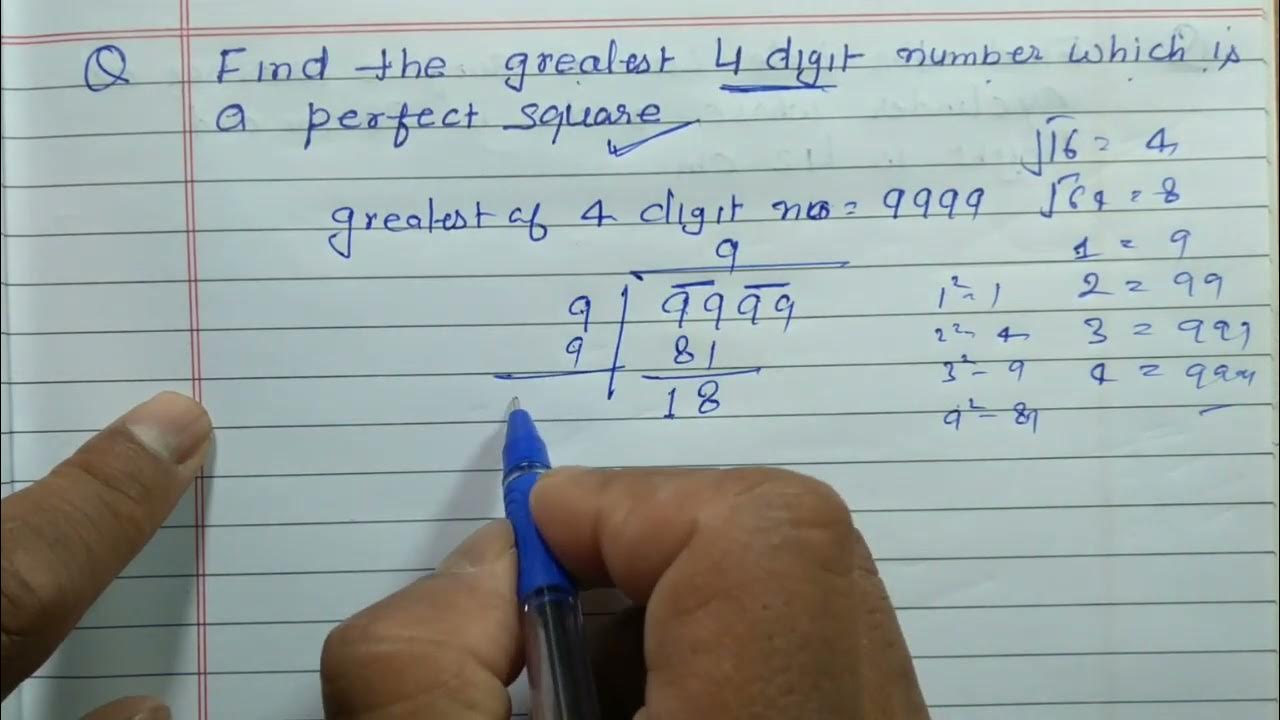 Q Find the greatest 4 digit number which is
a perfect square
√16 = 4
greatest of 4 digit no = 9999
√64 = 8
9
1 = 9
9 9999
1² = 1
2 = 99
9 81
2² = 4
3 = 999
18
3² - 9
4 = 9999
9² - 81